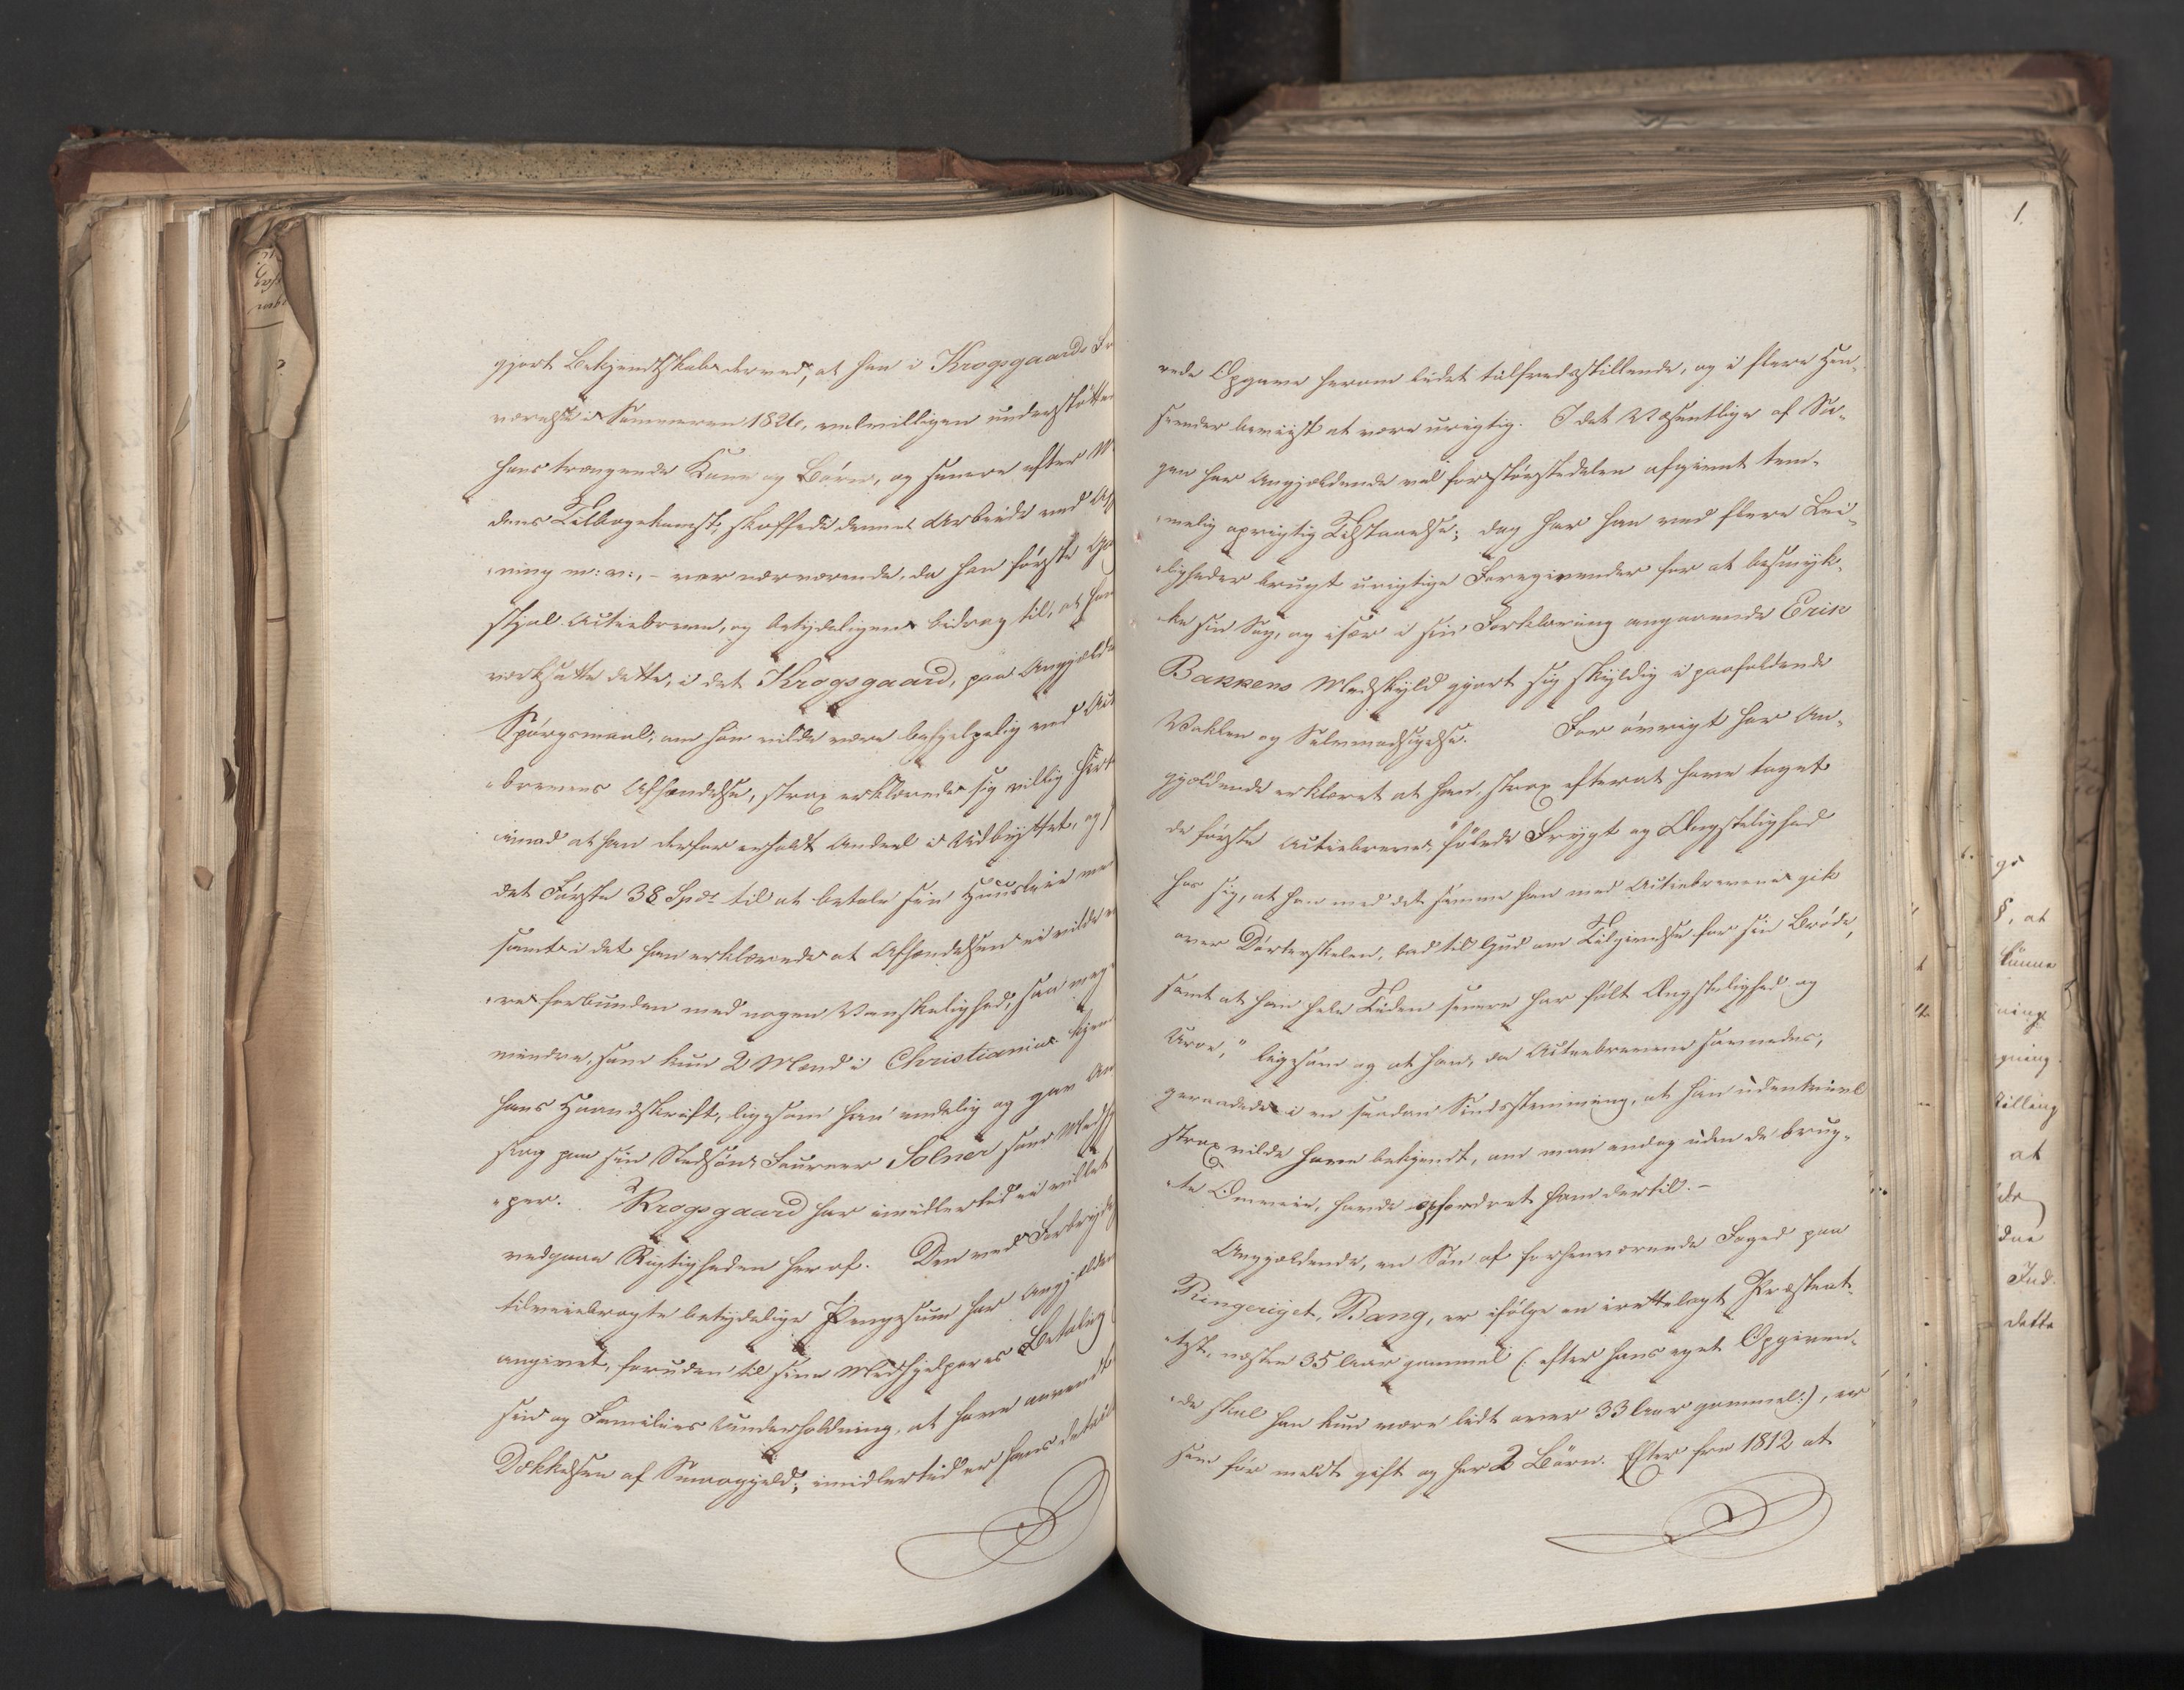 gjort Bekjendtskab derved, at han i Krogsgaards Fra
værelse i Sommeren 1826, velvilligen understøttede
hans trængende Kone og Børn, og senere efter M
dens Tilbagekomst, skaffede denne Arbeide ved
ning m: v:, – var nærværende, da han første Gang
stjal Actiebreve, og betydeligen bidrog til, at han
værksatte dette, i det Krogsgaard, paa Angjeld
Spørgsmaal, om han vilde være behjelpelig ved Act
brevenes Afhændelse, strax erklærede sig villig hert
imod at han derfor erholdt Andeel i Udbyttet, og
det Første 38 Spdr til at betale sin Huusleie me
samt i det han erklærede at Afhændelsen ei vilde
re forbunden med nogen Vanskelighed, saa meget
mindre, som kun 2 Mænd i Christiania kjend
hans Haandskrift, ligesom han endelig og gav An
slag paa sin Stedsøn Laurner Solner som Medhj
per. Krogsgaard har imidlertid ei villet
vedgaae Rigtigheden heraf. Den ved Forbryde
tilveiebragte betydelige Pengesum har Angjelden
angivet, foruden til sine Medhjelperes Betaling
sin og Families Underholdning, at have anvendt
Dækkelsen af Smaagjeld; imidlertid er hans detail
rede Opgave herom lidet tilfredsstillende, og i flere Hen-
seender beviist at være urigtig. I det Væsentlige af Sa-
gen har Angjeldende vel for størstedelen afgivet tem-
melig oprigtig Tilstaaelse; dog har han ved flere Lei-
ligheder brugt urigtige Foregivender for at besmyk-
ke sin Sag, og især i sin Forklaring angaaende Erik
Bakkens Medskyld gjort sig skyldig i paafaldende
Vaklen og Selvmodsigelse. For øvrigt har An-
gjeldende erklæret at han, strax efterat have taget
de første Actiebreve, "følede Frygt og Ængstelighed
hos sig, at han med det samme han med Actiebrevene gik
over Dørterskelen, bad til Gud om Tilgivelse for sin Brøde,
samt at han hele Tiden senere har følt Ængstelighed og
Uroe," ligesom og at han, da Actiebrevene savnedes,
geraadede i en saadan Sindsstemning, at han udentvivl
strax vilde have bekjendt, om man endog uden de brug-
te Omveie, havde opfordret ham dertil. –
Angjeldende, en Søn af forhenværende Foged paa
Ringeriget, Bang, er ifølge en irettelagt Præsteat-
test, næsten 35 Aar gammel (: efter hans eget Opgiven-
de skal han kun være lidt over 33 Aar gammel:), er
som før meldt gift og har 2 Børn. Efter fra 1812 at
1.
gs
§, at
kunne
ning
gning.
tilling
at
due
Ind.
dette